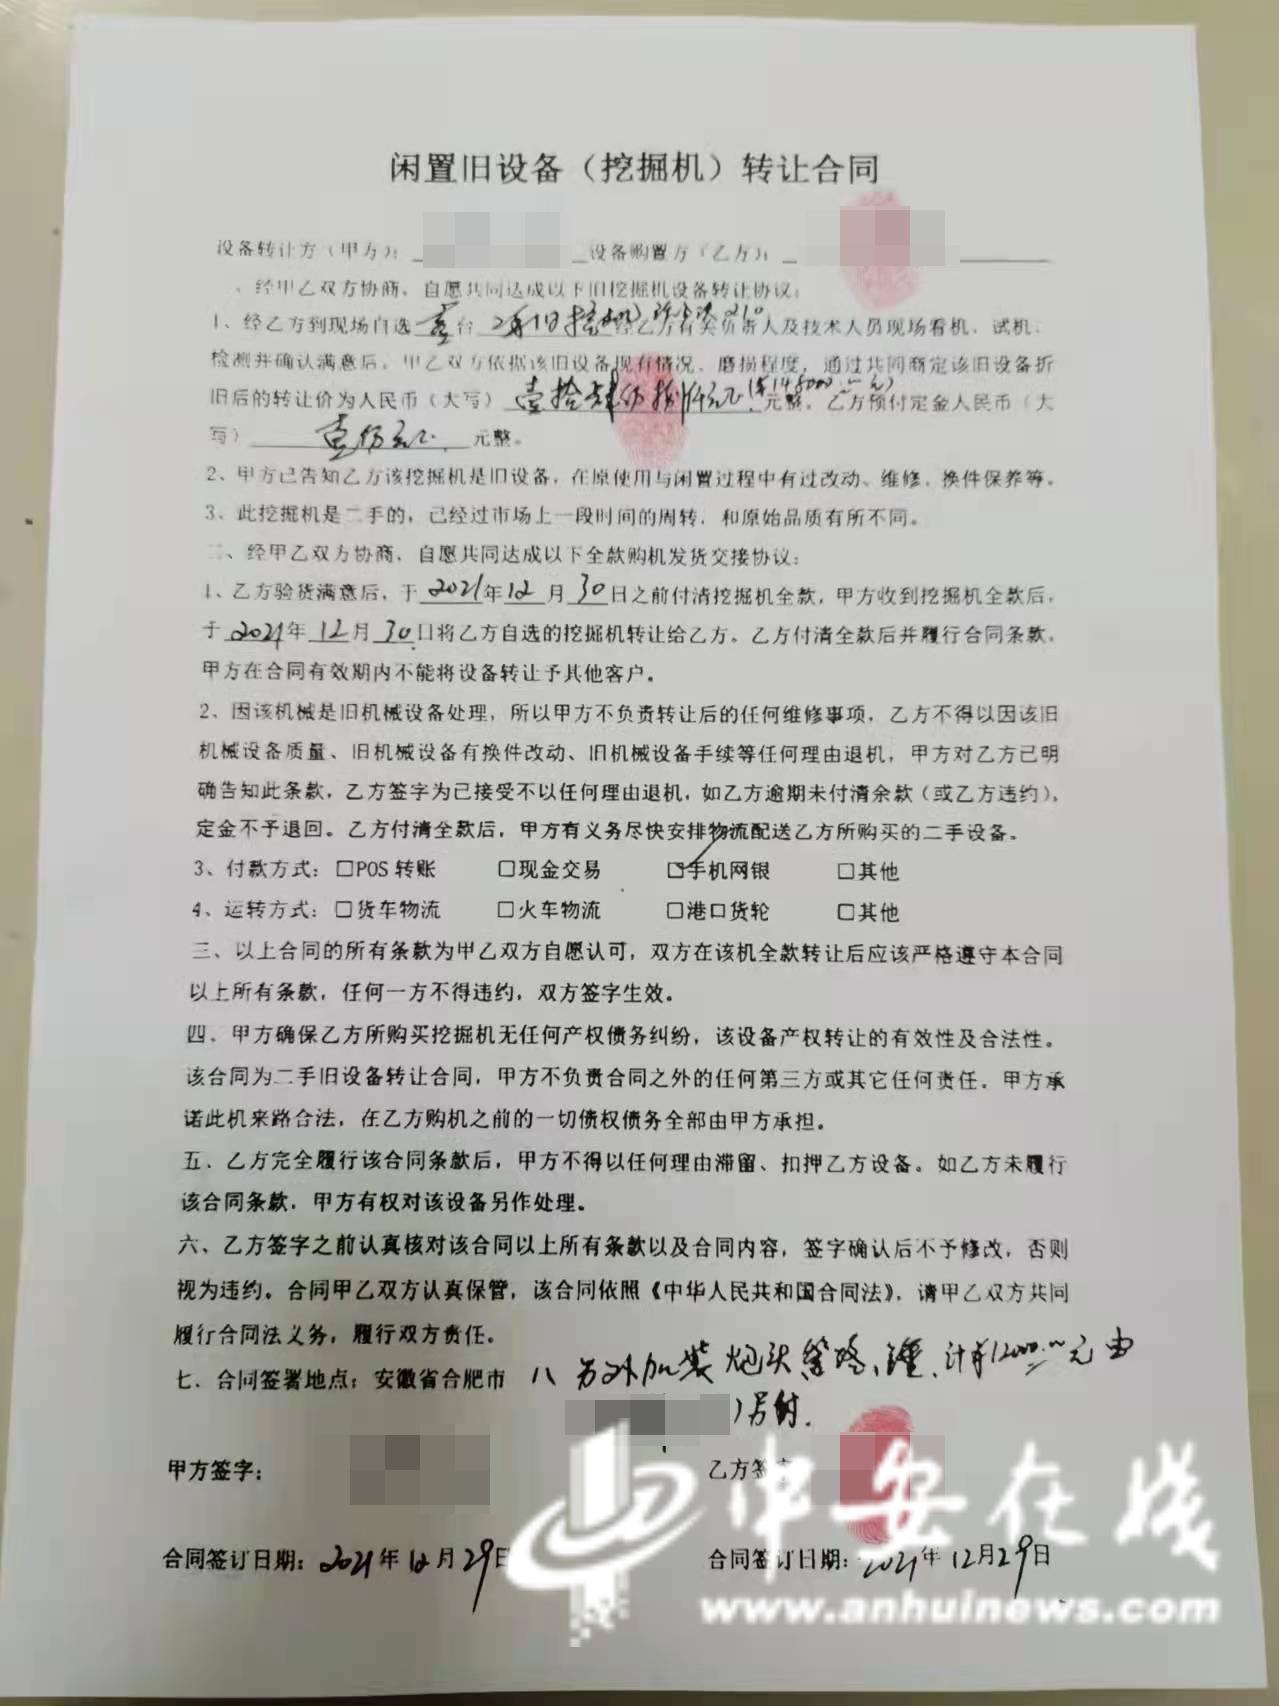 闲置旧设备（挖掘机）转让合同
设备转让方（甲方）： 设备购置方（乙方）：
、经甲乙双方协商、自愿共同达成以下旧挖掘机设备转让协议：
1、经乙方到现场自选 壹 台 经乙方有关负责人及技术人员现场看机、试机、
检测并确认满意后，甲乙双方依据该旧设备现有情况、磨损程度，通过共同商定该旧设备折
旧后的转让价为人民币（大写） 壹拾肆万捌仟元 (¥148000.00元) 元整。乙方预付定金人民币（大
写） 壹仟元 元整。
2、甲方已告知乙方该挖掘机是旧设备，在原使用与闲置过程中有过改动、维修、换件保养等。
3、此挖掘机是二手的，已经过市场上一段时间的周转，和原始品质有所不同。
二、经甲乙双方协商，自愿共同达成以下全款购机发货交接协议：
1、乙方验货满意后，于 2021 年 12 月 30 日之前付清挖掘机全款，甲方收到挖掘机全款后，
于 2021 年 12 月 30 日将乙方自选的挖掘机转让给乙方。乙方付清全款后并履行合同条款，
甲方在合同有效期内不能将设备转让予其他客户。
2、因该机械是旧机械设备处理，所以甲方不负责转让后的任何维修事项，乙方不得以因该旧
机械设备质量、旧机械设备有换件改动、旧机械设备手续等任何理由退机，甲方对乙方已明
确告知此条款，乙方签字为已接受不以任何理由退机，如乙方逾期未付清余款（或乙方违约），
定金不予退回。乙方付清全款后，甲方有义务尽快安排物流配送乙方所购买的二手设备。
3、付款方式：□POS 转账 □现金交易 ☑手机网银 □其他
4、运转方式：□货车物流 □火车物流 □港口货轮 □其他
三、以上合同的所有条款为甲乙双方自愿认可，双方在该机全款转让后应该严格遵守本合同
以上所有条款，任何一方不得违约，双方签字生效。
四、甲方确保乙方所购买挖掘机无任何产权债务纠纷，该设备产权转让的有效性及合法性。
该合同为二手旧设备转让合同，甲方不负责合同之外的任何第三方或其它任何责任，甲方承
诺此机来路合法，在乙方购机之前的一切债权债务全部由甲方承担。
五、乙方完全履行该合同条款后，甲方不得以任何理由滞留、扣押乙方设备。如乙方未履行
该合同条款，甲方有权对该设备另作处理。
六、乙方签字之前认真核对该合同以上所有条款以及合同内容，签字确认后不予修改，否则
视为违约。合同甲乙双方认真保管，该合同依照《中华人民共和国合同法》，请甲乙双方共同
履行合同法义务，履行双方责任。
七、合同签署地点：安徽省合肥市
八 另外加装炮头管路、 计¥12000.00元由
另付.
甲方签字： 乙方签
合同签订日期：2021年12月29日 合同签订日期：2021年12月29日
中安在线
www.anhuinews.com